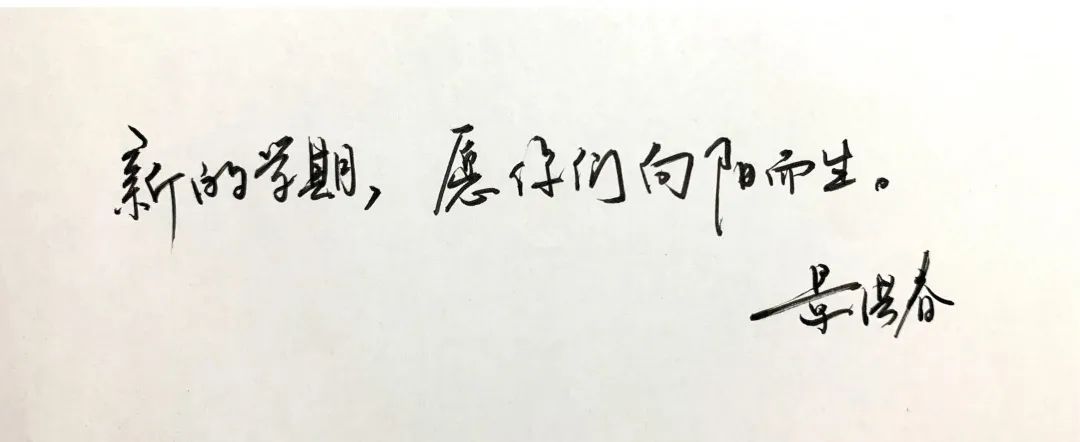 新的学期，愿你们向阳而生。
景洪春